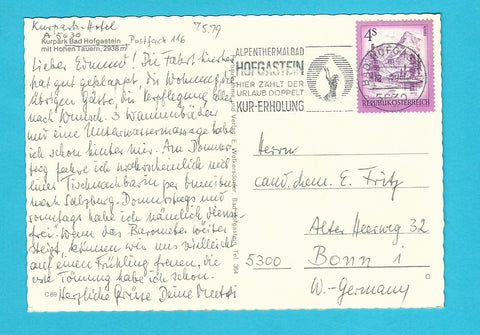 Kurpark-Hotel
A 5630
Postfach 116
7.5.79
Kurpark Bad Hofgastein
mit Hohen Tauern, 2938 m
Lieber Edmund! Die Fahrt hierher
hat gut geklappt, die Wohnung, die
übrigen Gäste, die Verpflegung, alles
nach Wunsch. 3 Wannenbäder
und eine Unterwassermassage habe
ich schon hinter mir. Am Donners-
tag fahre ich wahrscheinlich mit
einer Tischnachbarin per Omnibus
nach Salzburg. Donnerstags und
sonntags habe ich nämlich
frei. Wenn das Barometer weiter
steigt, können wir uns vielleicht
auf einen Frühling freuen, die
erste Tönung habe ich schon.
Herzliche Grüsse Deine
C 89
ALPENTHERMALBAD
HOFGASTEIN
HIER ZÄHLT DER
URLAUB DOPPELT
KUR-ERHOLUNG
BAD HOFGASTEIN
5630
4S
REPUBLIK ÖSTERREICH
Herrn
cand. chem. E. Fritz
Alter Heerweg 32
5300 Bonn 1
W.-Germany